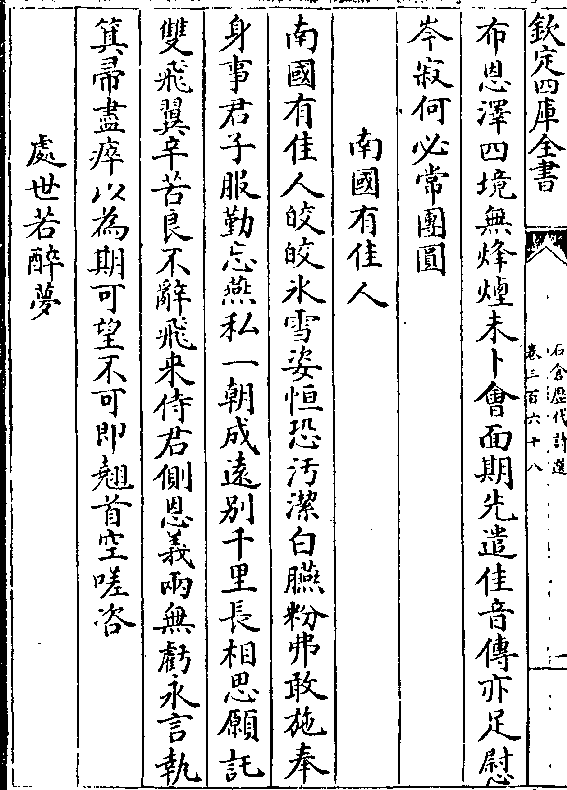 欽定四庫全書
石倉歷代詩選
卷三百六十八
布恩澤四境無烽煙未卜會面期先遣佳音傳亦足慰
岑寂何必常團圓
南國有佳人
南國有佳人皎皎氷雪姿恒恐汚潔白臙粉弗敢施奉
身事君子服勤忘燕私一朝成遠別千里長相思願託
雙飛翼辛苦良不辭飛来侍君側恩義兩無虧永言執
箕帚盡瘁以為期可望不可即翹首空嗟咨
處世若醉夢